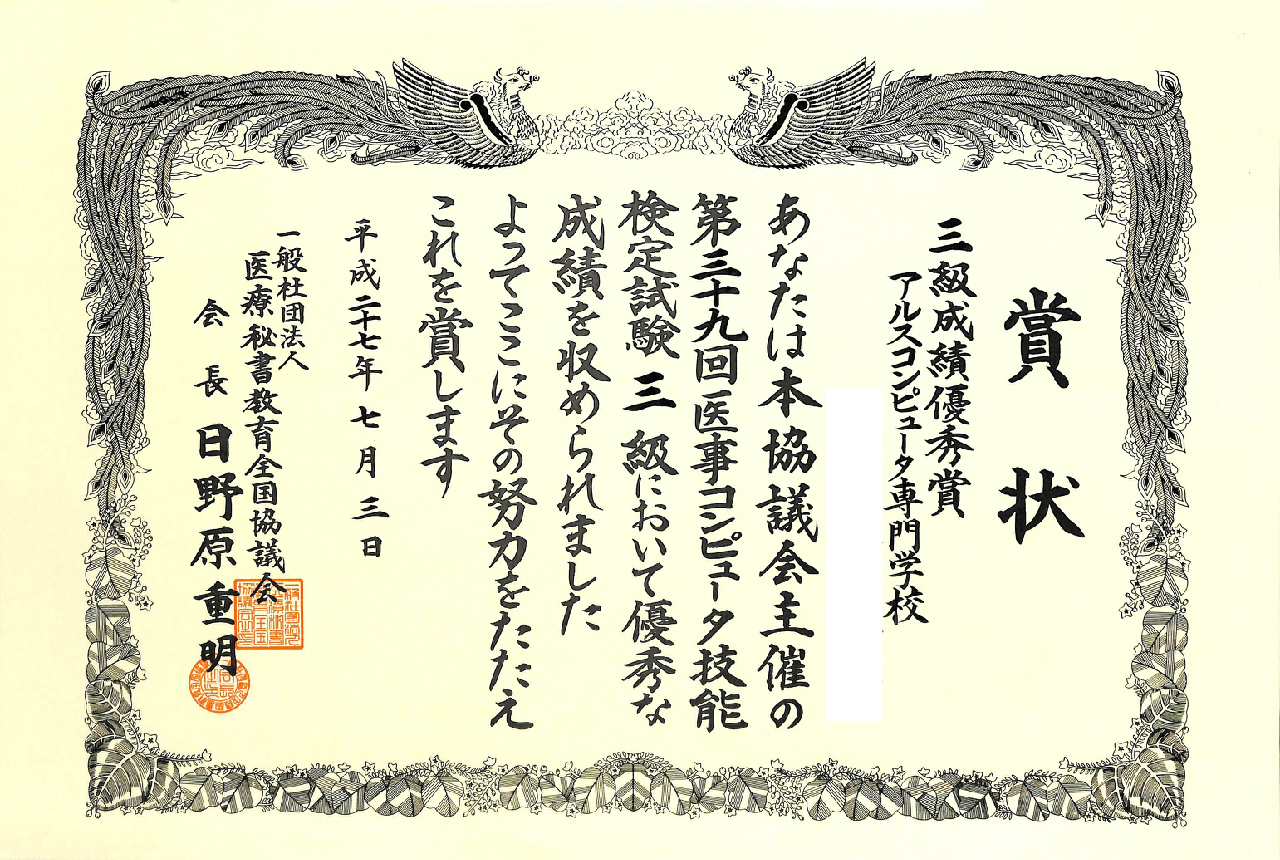 賞状
三級成績優秀賞
アルスコンピュータ専門学校
あなたは本協議会主催の
第三十九回医事コンピュータ技能
検定試験三級において優秀な
成績を収められました
よってここにその努力をたたえ
これを賞します
平成二十七年七月三日
一般社団法人
医療秘書教育全国協議会
会長日野原重明